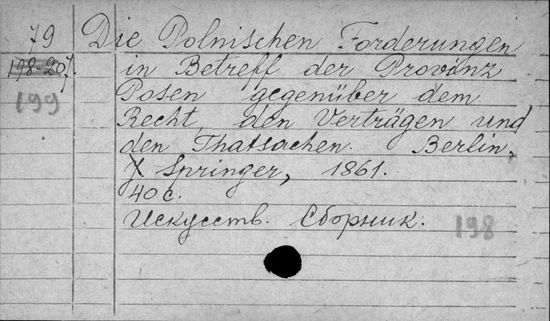 79 Die Polnischen Forderungen
198-207. in Betreff der Provönz
199 Posen gegenüber dem
Recht, den Verträgen und
den Thatsachen. Berlin,
J. Springer, 1861.
40 с.
Искусств. Сборник. 198